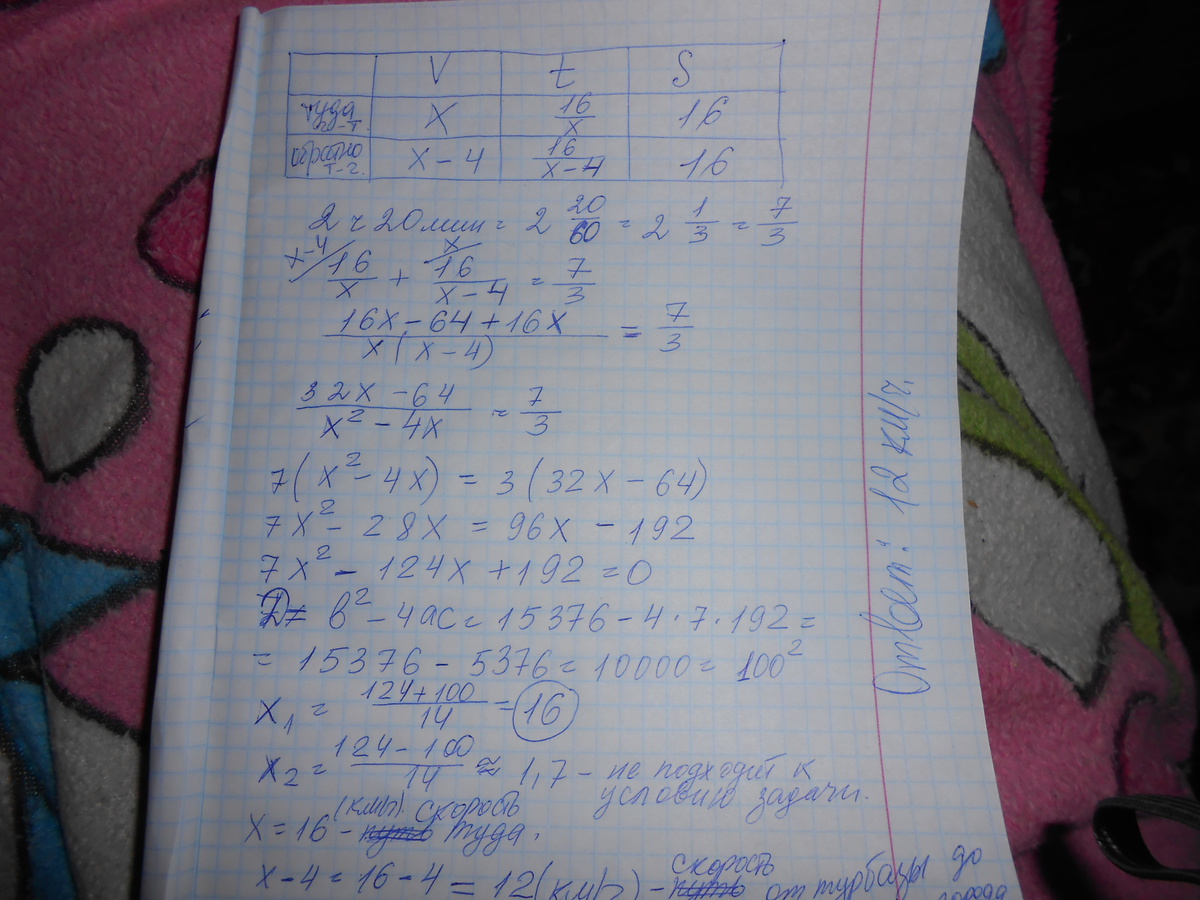 V t S
туда г-т. X 16/x 16
обратно т-г. x-4 16/x-4 16
2 ч 20 мин = 2 20/60 = 2 1/3 = 7/3
x-4/ 16/x + x/ 16/x-4 = 7/3
16x-64+16x / x(x-4) = 7/3
32x-64 / x²-4x = 7/3
7(x²-4x) = 3(32x-64)
7x²-28x = 96x-192
7x²-124x+192=0
D= b²-4ac= 15376-4·7·192=
= 15376-5376=10000=100²
x₁= 124+100/14 = 16
x₂= 124-100/14 ≈ 1,7 - не подходит к
условию задачи.
x=16 (км/ч) - путь скорость туда.
x-4=16-4=12(км/ч) - путь скорость от турбазы до
города
Ответ: 12 км/ч.